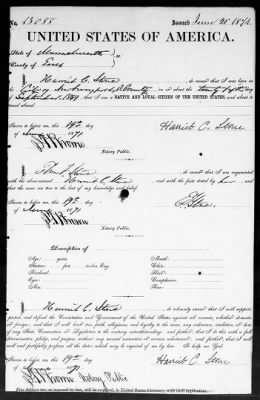 No. 13088 Issued June 20 1871
UNITED STATES OF AMERICA.
State of Massachusetts
County of Essex
I, Harriet C. Stone do swear that I was born in the
City of Newburyport, on or about the day
of 1849 that I am a NATIVE AND LOYAL CITIZEN OF THE UNITED STATES, and about to travel
abroad.
Sworn to before me, this 19th day
of June 1871
Harriet C. Stone
Notary Public.
I, Stone do swear that I am acquainted
with the above-named Harriet C. Stone and with the facts stated by her and
that the same are true to the best of my knowledge and belief.
Sworn to before me, this 19th day
of June 1871
Stone.
Notary Public.
Description of
Age: years. Mouth:
Stature: feet inches, Eng. Chin:
Forehead: Hair:
Eyes: Complexion:
Nose: Face:
I, Harriet C. Stone do solemnly swear that I will support,
protect and defend the Constitution and Government of the United States against all enemies, whether domestic
or foreign; and that I will bear true faith, allegiance and loyalty to the same, any ordinance, resolution or law
of any State, Convention or Legislature to the contrary notwithstanding; and further, that I do this with a full
determination, pledge, and purpose, without any mental reservation or evasion whatsoever; and further, that I will
well and faithfully perform all the duties which may be required of me by law. So help me God.
Sworn to before me, this 19th day
of June 1871
Harriet C. Stone
Notary Public